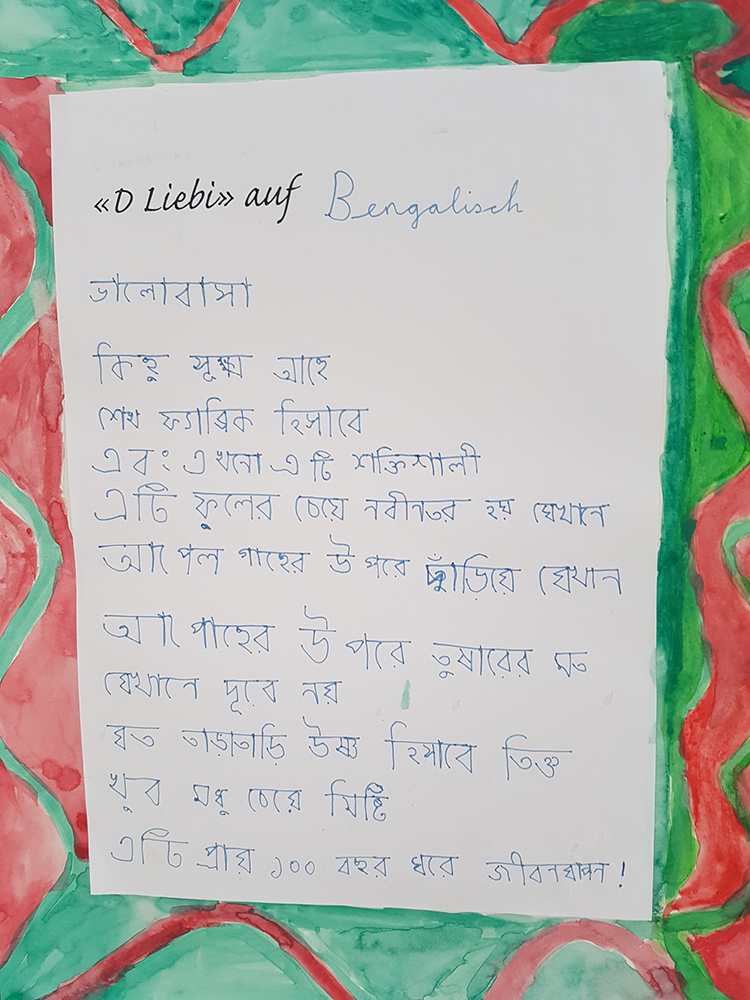 «D Liebi» auf Bengalisch
ভালোবাসা
কিছু সূক্ষ্ম আছে
শেষ ফ্যাব্রিক হিসাবে
এবং এখনো এটি শক্তিশালী
এটি ফুলের চেয়ে নবীনতর হয় যেখানে
আপেল গাছের উপরে দাঁড়িয়ে যেখান
আপোছের উপরে তুষারের মত
যেখানে দূরে নয়
যত তাড়াতাড়ি উষ্ণ হিসাবে তিক্ত
খুব মধু চেরে মিষ্টি
এটি প্রায় ১০০ বছর ধরে জীবনযাপন!